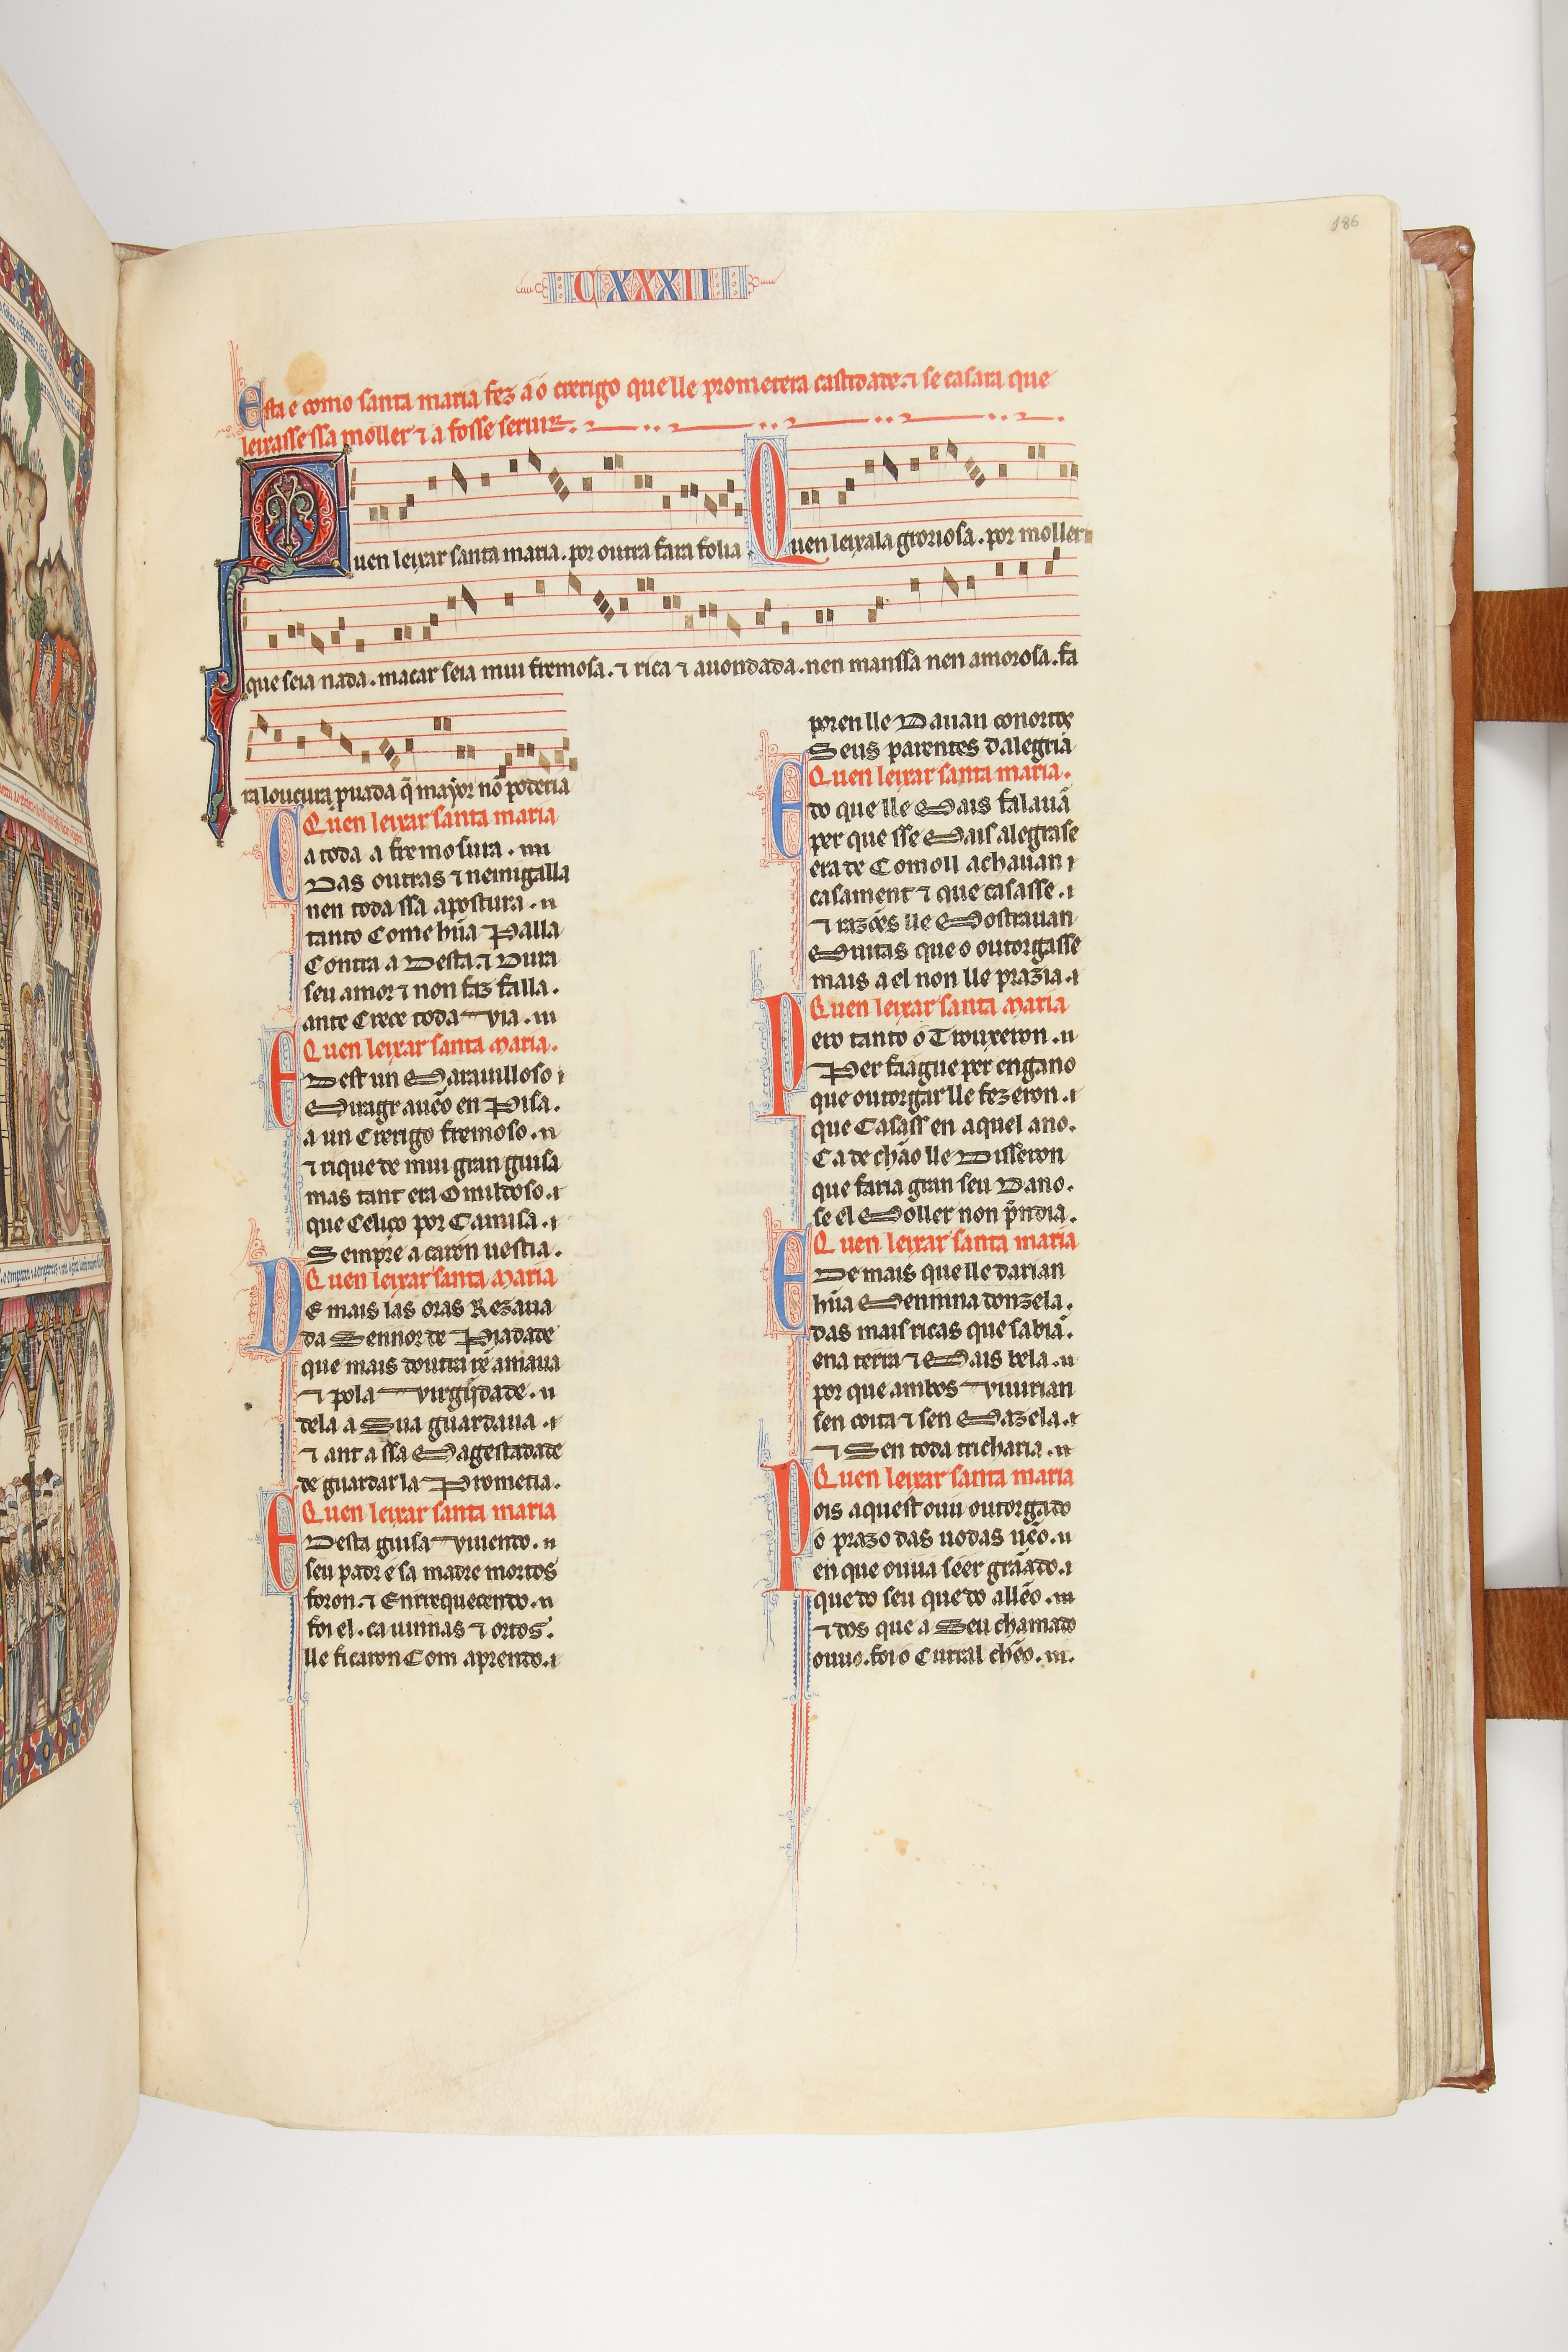 186
CXXXII
Esta é como santa maria fez ao crerigo que lle prometera castidade. ⁊ se casara que
leixasse ssa moller ⁊ a fosse seruir.
Quen leixar santa maria. por outra fara folia. Quen leixala groriosa. por moller
que seia nada. macar seia mui fremosa. ⁊ rica ⁊ auondada. nen manssa nen amorosa. fa
ra loucura prouada q̃ mayor nõ poderia
Quen leixar santa maria
Ca toda a fremosura.
Das outras ⁊ nemigalla
nen toda ssa apostura.
tanto Come hũa Palla
Contra a Desta. ⁊ Dura
seu amor ⁊ non faz falla.
ante Crece toda via.
Quen leixar santa Maria.
E Dest un Marauilloso
Miragr auẽo en Pisa.
a un Crerigo fremoso.
⁊ rique de mui gran guisa
mas tant era Omildoso.
que Celiço por Camisa.
Sempre a carõn uestia.
Quen leixar santa Maria
DE mais las oras Rezaua
da Sennor de Piadade
que mais doutra rẽ amaua
⁊ pola virgĩidade.
dela a Sua guardaua.
⁊ ant a ssa Magestadade
de guardarla Prometia.
Quen leixar santa maria
E Desta guisa viuendo.
seu padr e sa madre mortos
foron. ⁊ Enrrequecendo.
foi el. ca uinnas ⁊ ortos.
lle ficaron Com aprendo.
poren lle Dauan conortes
Seus parentes d alegria
Quen leixar santa maria.
E do que lle Mais falauã
per que sse Mais alegrase
era de Com oll achauan
casament ⁊ que casasse.
⁊ razões lle Mostrauan
Muitas que o outorgasse
mais a el non lle prazia.
Quen leixar santa Maria
Pero tanto o Trouxeron.
Per faague per engano
que outorgar lle fezeron.
que Casass en aquel ano.
Ca de chão lle Disseron
que faria gran seu Dano.
se el Moller non prendia.
Quen leixar santa maria
E De mais que lle darian
hũa Meninna donzela.
das mais ricas que sabiã.
ena terra ⁊ Mais bela.
por que ambos viuirian
sen coita ⁊ sen Mazela.
⁊ Sen toda tricharia.
Quen leixar santa maria
Pois aquest ouu outorgado
o prazo das uodas uẽo.
en que ouui a seer grãado.
que do seu que do allẽo.
⁊ dos que a Seu chamado
ouuo. foi o Curral chẽo.